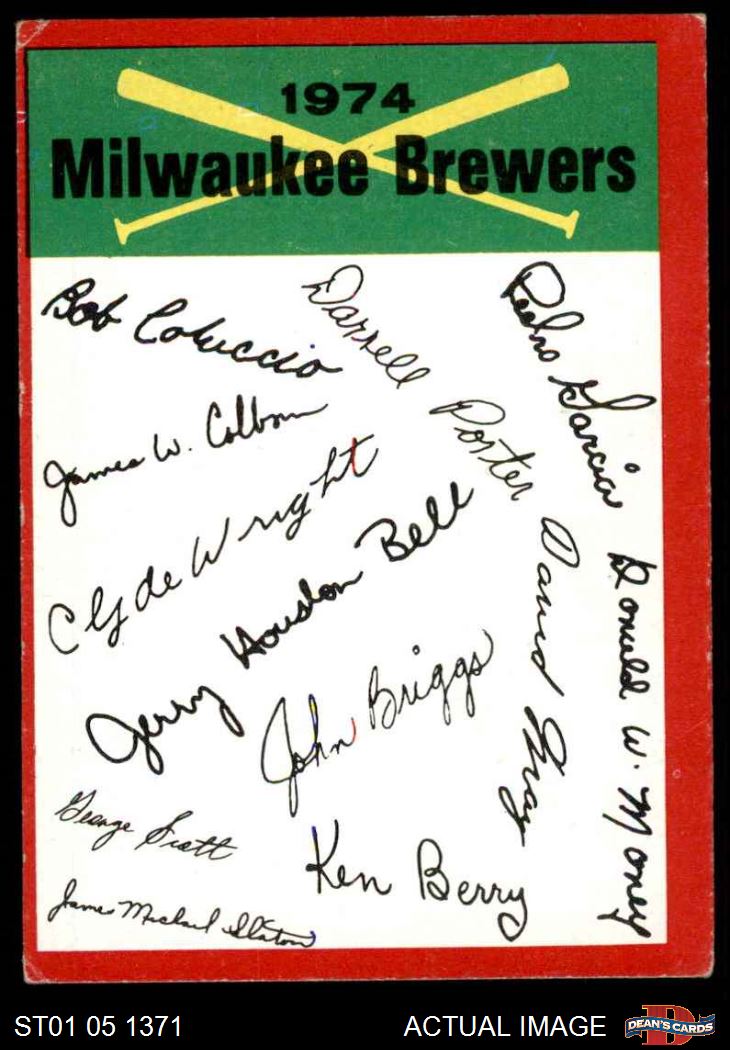 1974
Milwaukee Brewers
Bob Coluccio
Darrell Porter
Pedro Garcia
James W. Colborn
Clyde Wright
Jerry Houston Bell
David May
Donald W. Money
John Briggs
George Scott
Ken Berry
James Michael Slaton
ST01 05 1371
ACTUAL IMAGE
D
DEAN'S CARDS